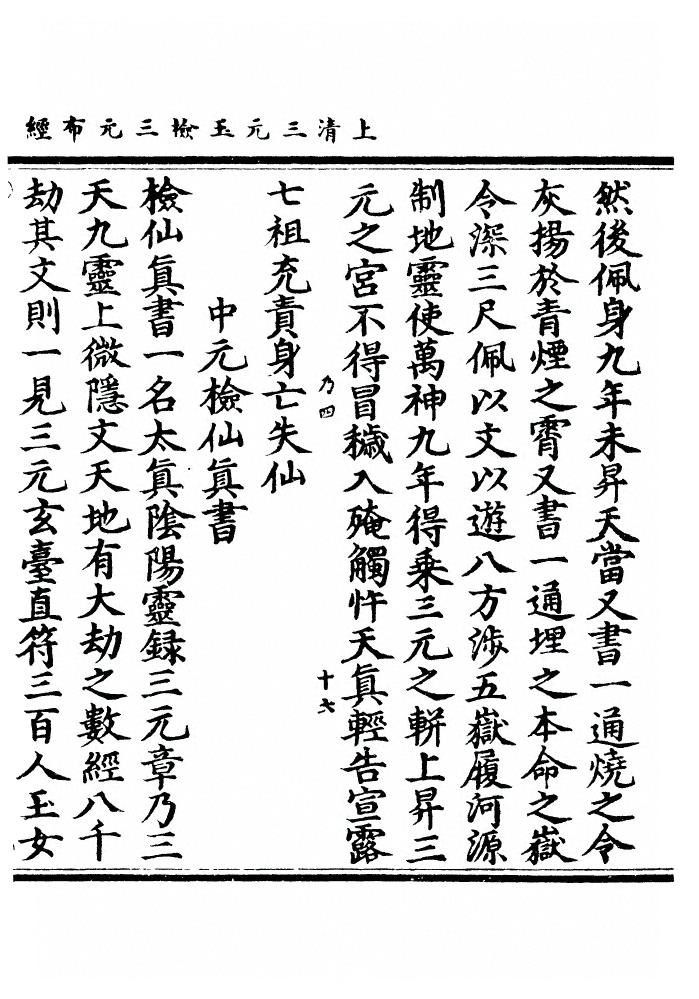 上清三元玉檢三元布經
然後佩身九年未昇天當又書一通燒之令
灰揚於青煙之霄又書一通埋之本命之嶽
令深三尺佩以文以遊八方涉五嶽履河源
制地靈使萬神九年得乗三元之軿上昇三
元之宮不得冒穢入殗觸忤天真輕告宣露
乃四
十六
七祖充責身亡失仙
中元檢仙眞書
檢仙眞書一名太眞陰陽靈録三元章乃三
天九靈上微隱文天地有大劫之數經八千
劫其文則一見三元玄臺直符三百人玉女